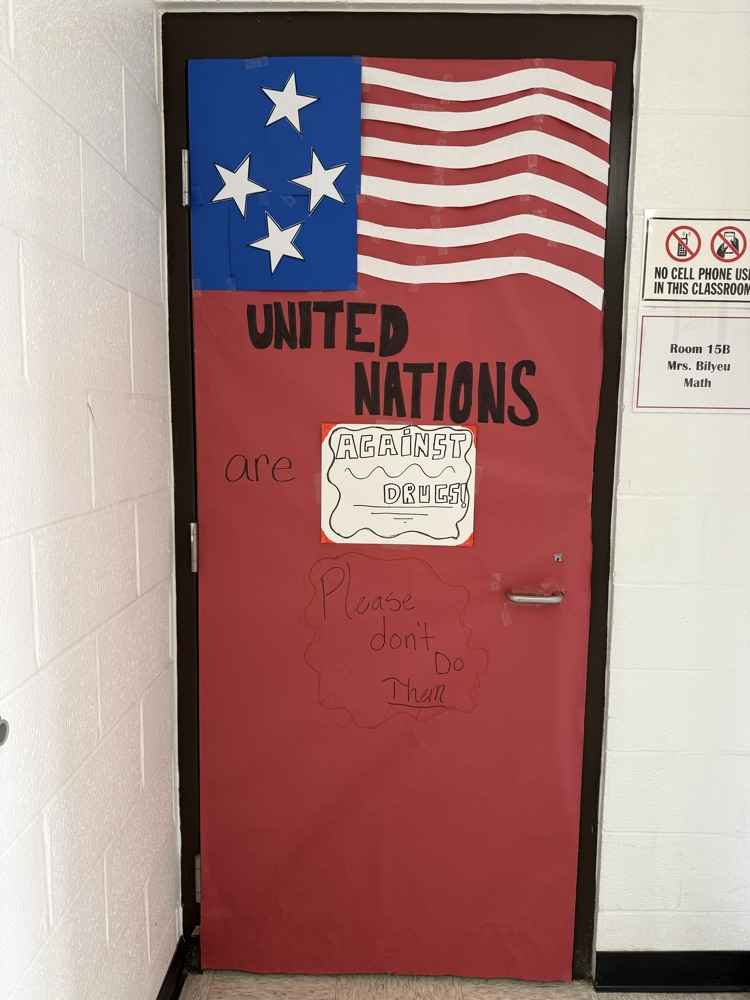 UNITED
NATIONS
are
AGAINST
DRUGS!
Please
don't
Do
Them
NO CELL PHONE US
IN THIS CLASSROOM
Room 15B
Mrs. Bilyeu
Math